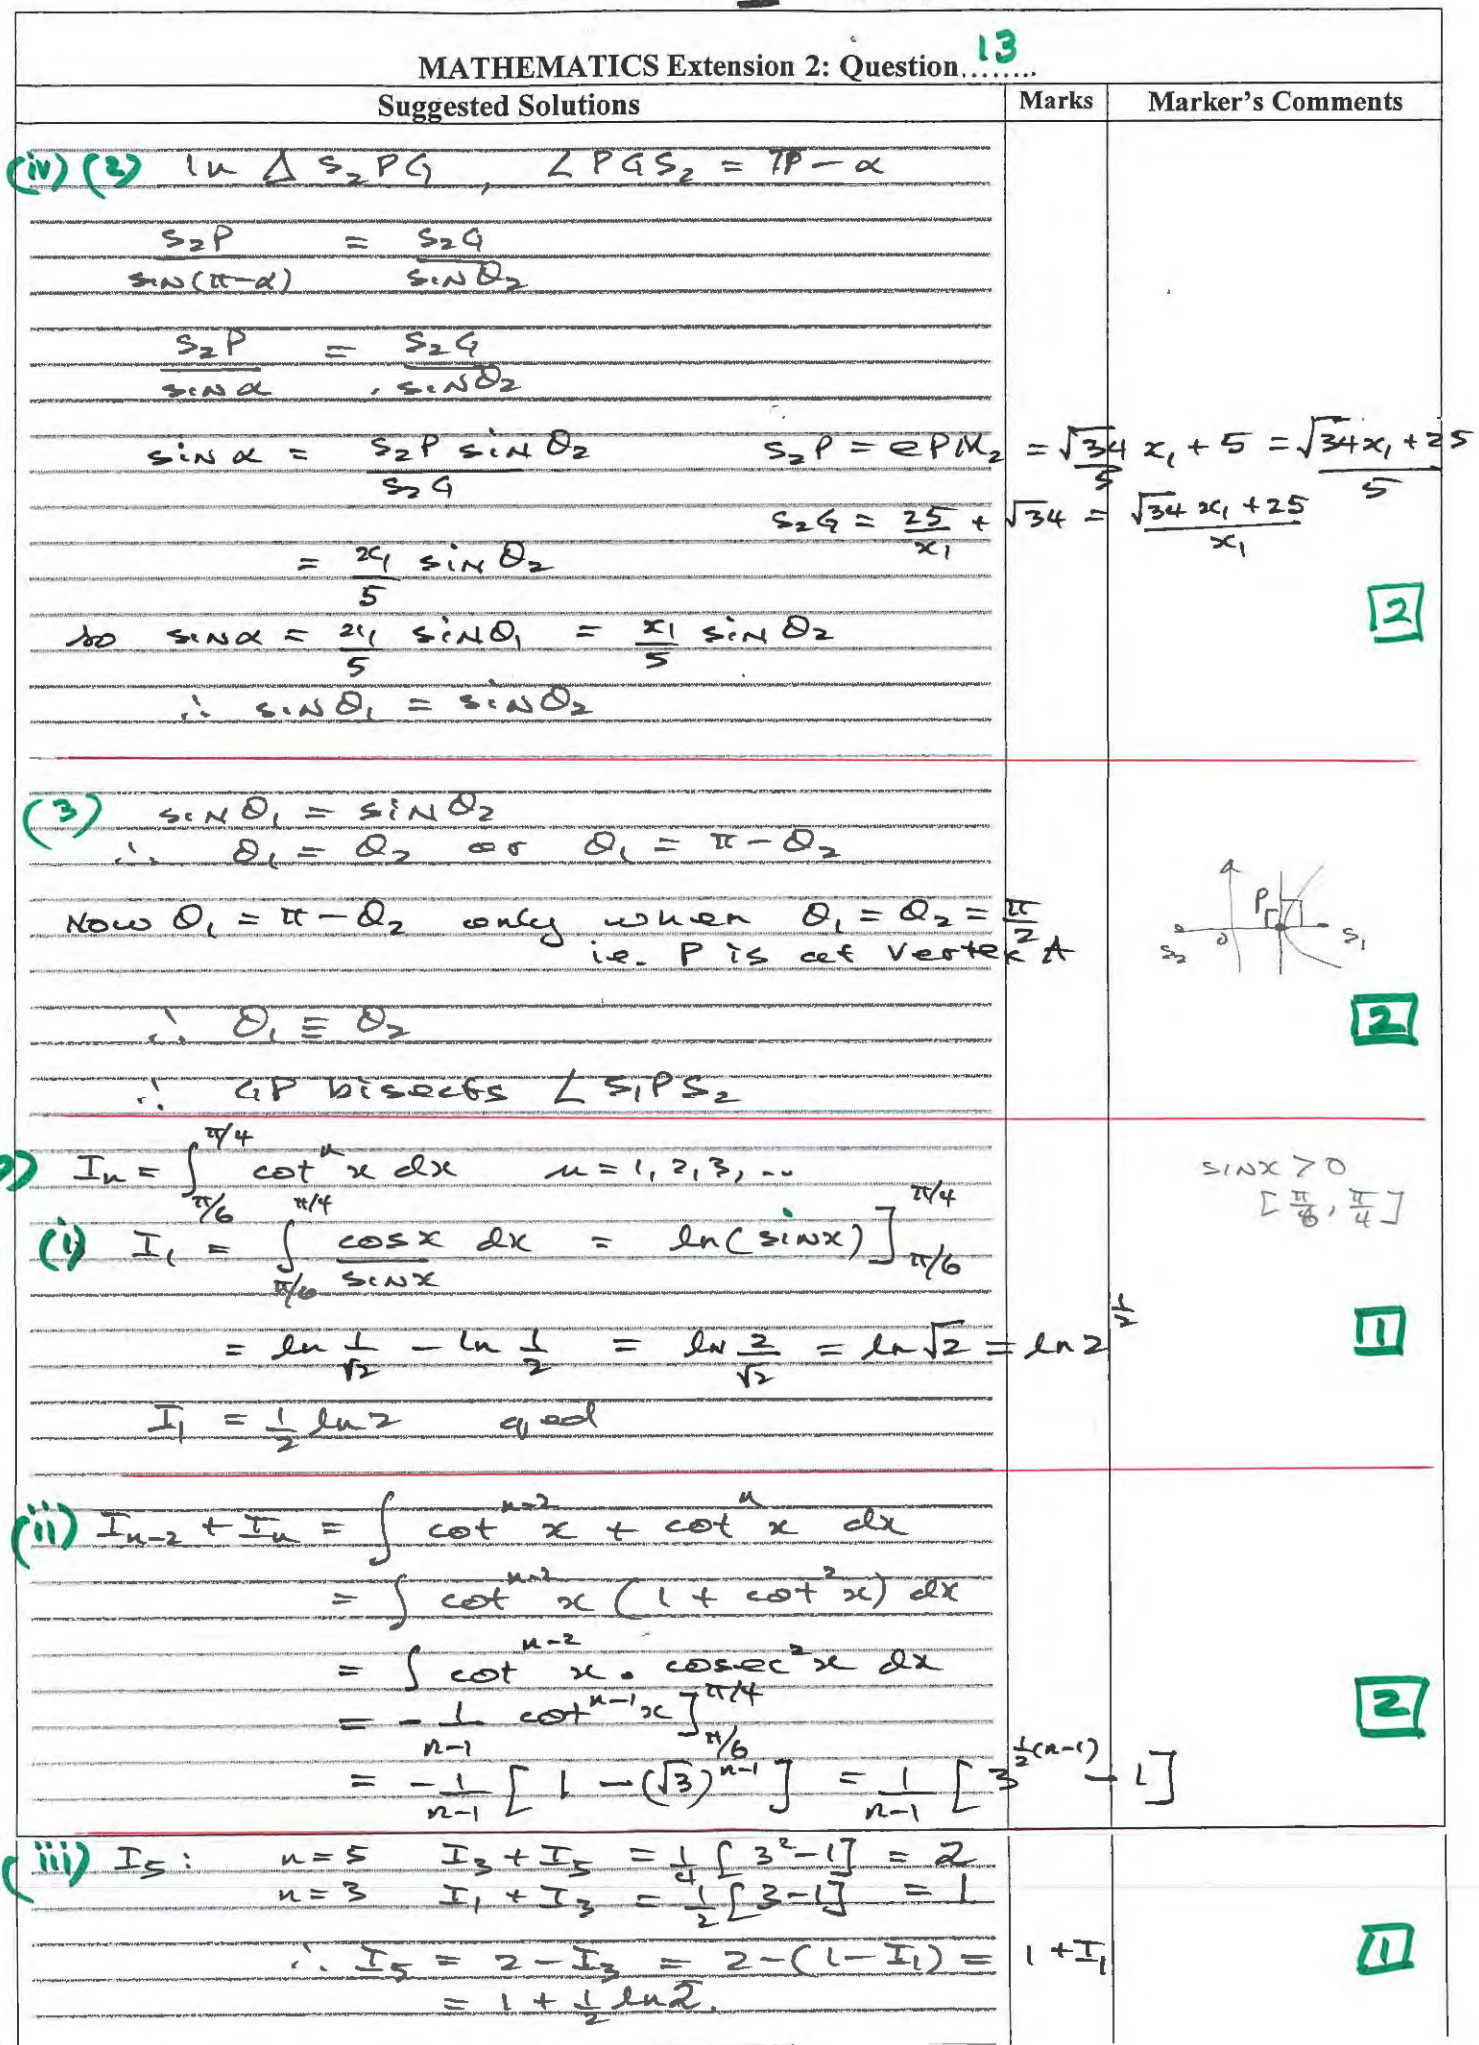 MATHEMATICS Extension 2: Question........ 13
Suggested Solutions Marks Marker's Comments
(iv) (2) In Δ S₂PG, ∠PGS₂ = π - α
S₂P/sin(π-α) = S₂G/sinθ₂
S₂P/sinα = S₂G/sinθ₂
sinα = S₂P sinθ₂/S₂G S₂P = ePM₂ = √34/5 x₁ + 5 = (√34x₁ + 25)/5
S₂G = 25/x₁ + √34 = (√34 x₁ + 25)/x₁
= x₁/5 sinθ₂
so sinα = x₁/5 sinθ₁ = x₁/5 sinθ₂ 2
∴ sinθ₁ = sinθ₂
(3) sinθ₁ = sinθ₂
∴ θ₁ = θ₂ or θ₁ = π - θ₂
Now θ₁ = π - θ₂ only when θ₁ = θ₂ = π/2
i.e. P is at vertex A
P S₂ O S₁
∴ θ₁ ≡ θ₂ 2
∴ GP bisects ∠S₁PS₂
Iₙ = ∫_{π/6}^{π/4} cotⁿx dx n = 1, 2, 3, ... sinx > 0
[π/6, π/4]
(i) I₁ = ∫_{π/6}^{π/4} cosx/sinx dx = ln(sinx)]_{π/6}^{π/4}
= ln 1/√2 - ln 1/2 = ln 2/√2 = ln√2 = ln2^{1/2} 1
I₁ = 1/2 ln2 qed
(ii) Iₙ₋₂ + Iₙ = ∫ cotⁿ⁻²x + cotⁿx dx
= ∫ cotⁿ⁻²x (1 + cot²x) dx
= ∫ cotⁿ⁻²x . cosec²x dx
= -1/(n-1) cotⁿ⁻¹x]_{π/6}^{π/4} 2
= -1/(n-1) [1 - (√3)ⁿ⁻¹] = 1/(n-1) [3^{1/2(n-1)} - 1]
(iii) I₅: n = 5 I₃ + I₅ = 1/4 [3² - 1] = 2
n = 3 I₁ + I₃ = 1/2 [3 - 1] = 1
∴ I₅ = 2 - I₃ = 2 - (1 - I₁) = 1 + I₁ 1
= 1 + 1/2 ln2.